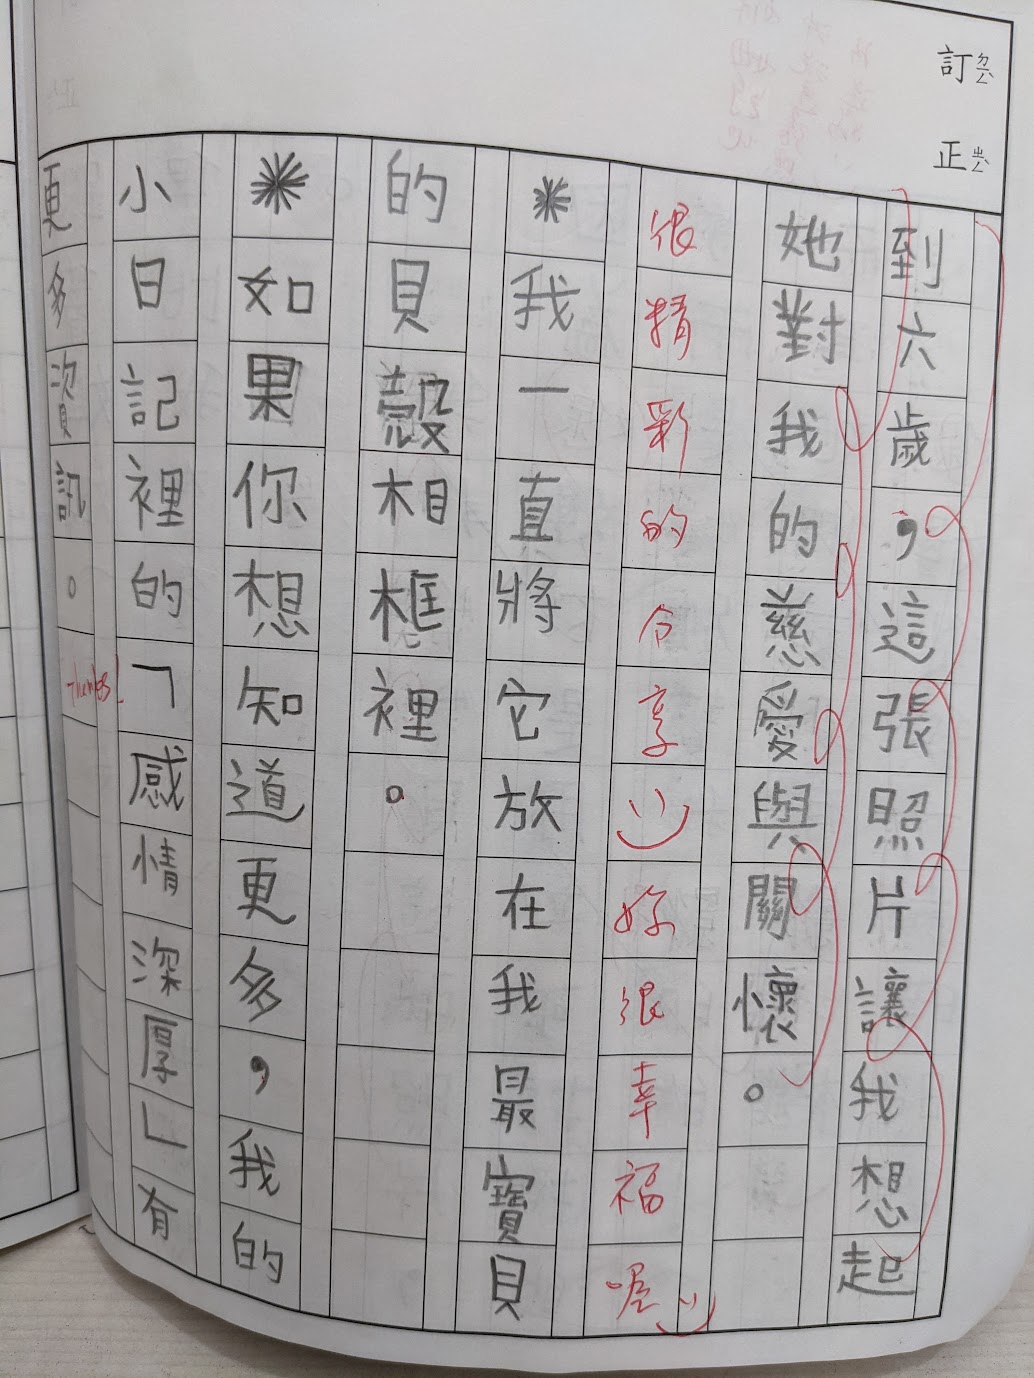 訂ㄉㄧㄥˋ正ㄓㄥˋ
到六歲，這張照片讓我想起
她對我的慈愛與關懷。
很精彩的分享 妳很幸福喔
※我一直將它放在我最寶貝
的貝殼相框裡。
※如果你想知道更多，我的
小日記裡的「感情深厚」有
更多資訊。
Thanks!